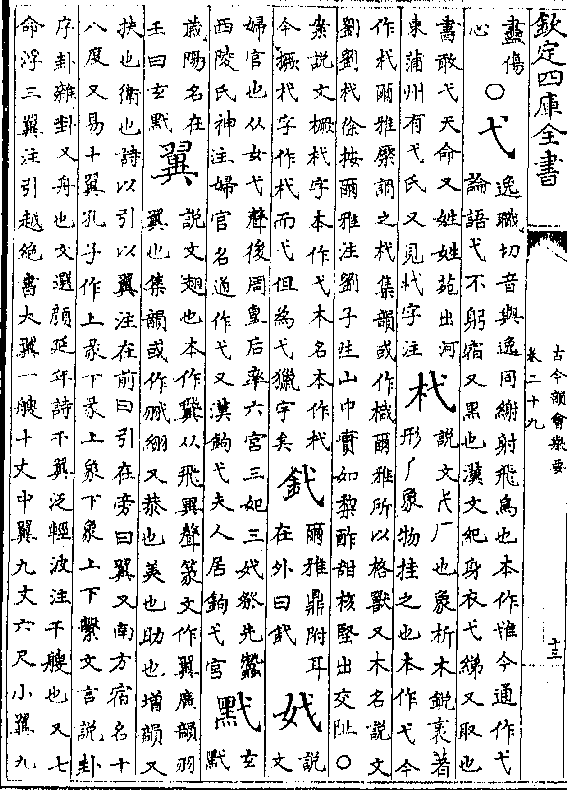 欽定四庫全書
古今韻會舉要
卷二十九
十三
盡傷
心
○弋
逸職切音與逸同繳射飛鳥也本作惟今通作弋
論語弋不躬宿又黑也漢文紀身衣弋綈又取也
書敢弋天命又姓姓苑出河
東蒲州有弋氏又見杙字注
杙
說文弋厂也象析木銳衺著
形厂象物挂之也本作弋今
作杙爾雅檿謂之杙集韻或作樴爾雅所以格獸又木名說文
劉劉杙徐按爾雅注劉子生山中實如黎酢甜核堅出交趾○
案說文橛杙字本作弋木名本作杙
今橛杙字作杙而弋但為弋獵字矣
釴
爾雅鼎附耳
在外曰釴
㚤
說
文
婦官也从女弋聲後周皇后率六宮三妃三㚤祭先蠶
西陵氏神注婦官名通作弋又漢鉤弋夫人居鉤弋宮
黓
玄
黓
歲陽名在
壬曰玄黓
翼
說文翅也本作𩙺从飛異聲篆文作翼廣韻羽
翼也集韻或作又恭也美也助也增韻又
扶也衛也詩以引以翼注在前曰引在旁曰翼又南方宿名十
八度又易十翼孔子作上彖下彖上象下象上下繫文言說卦
序卦雜卦又舟也文選顏延年詩不翼泛輕波注千艘也又七
命浮三翼注引越絕書大翼一艘十丈中翼九丈六尺小翼九